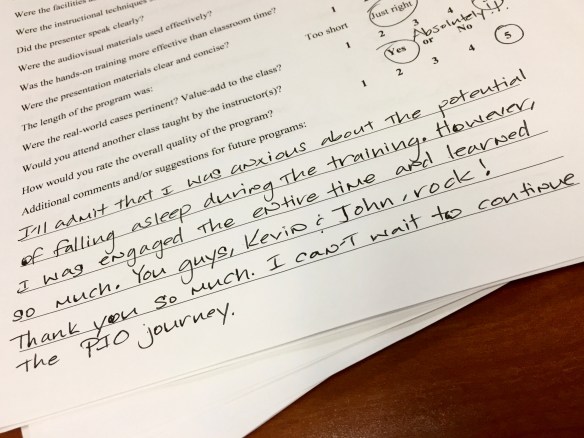 Were the facilities
Were the instructional techniques
Did the presenter speak clearly?
Were the audiovisual materials used effectively?
Was the hands-on training more effective than classroom time?
Were the presentation materials clear and concise?
The length of the program was: Too short Just right
Were the real-world cases pertinent? Value-add to the class? 1 2 3 4
Would you attend another class taught by the instructor(s)? Yes or No Absolutely!!
How would you rate the overall quality of the program? 1 2 3 4 5
Additional comments and/or suggestions for future programs:
I'll admit that I was anxious about the potential
of falling asleep during the training. However,
I was engaged the entire time and learned
so much. You guys, Kevin & John, rock!
Thank you so much. I can't wait to continue
the PIO journey.